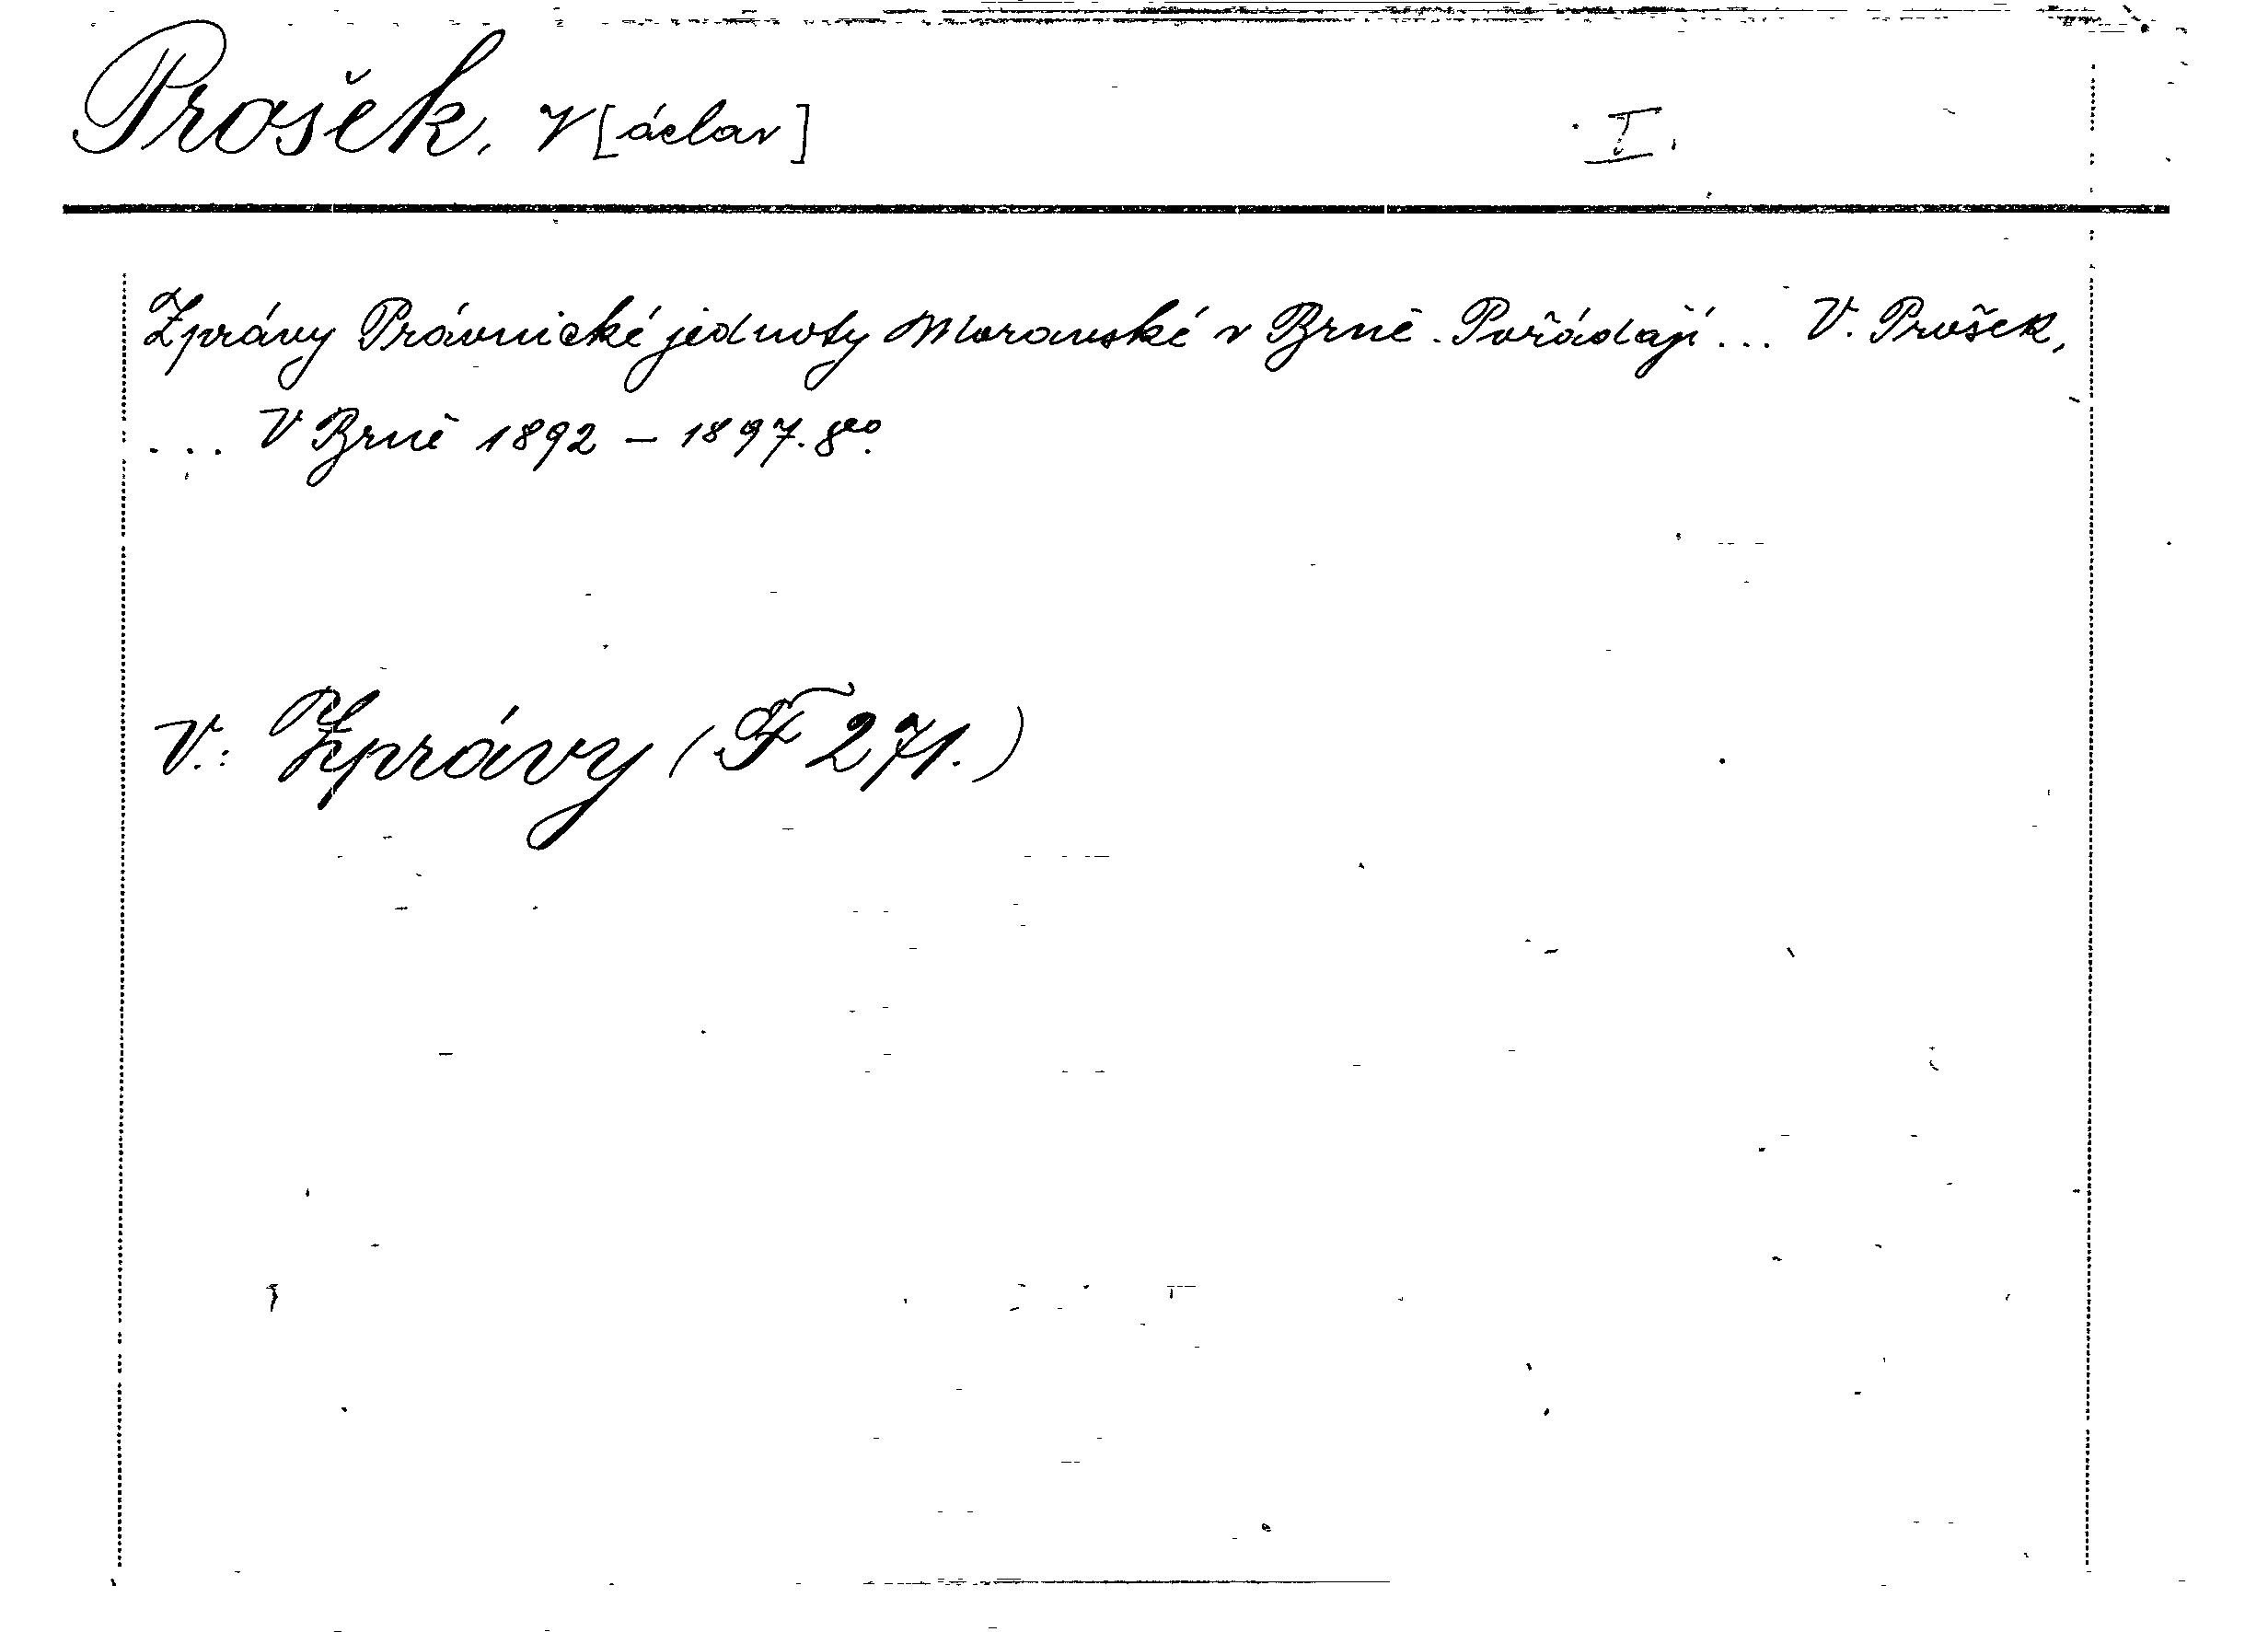 Prošek, V[áclav] I.
Zprávy Právnické jednoty Moravské v Brně. Pořádají ... V. Prošek,
... V Brně 1892 – 1897. 8vo.
V.: Zprávy (F 271.)